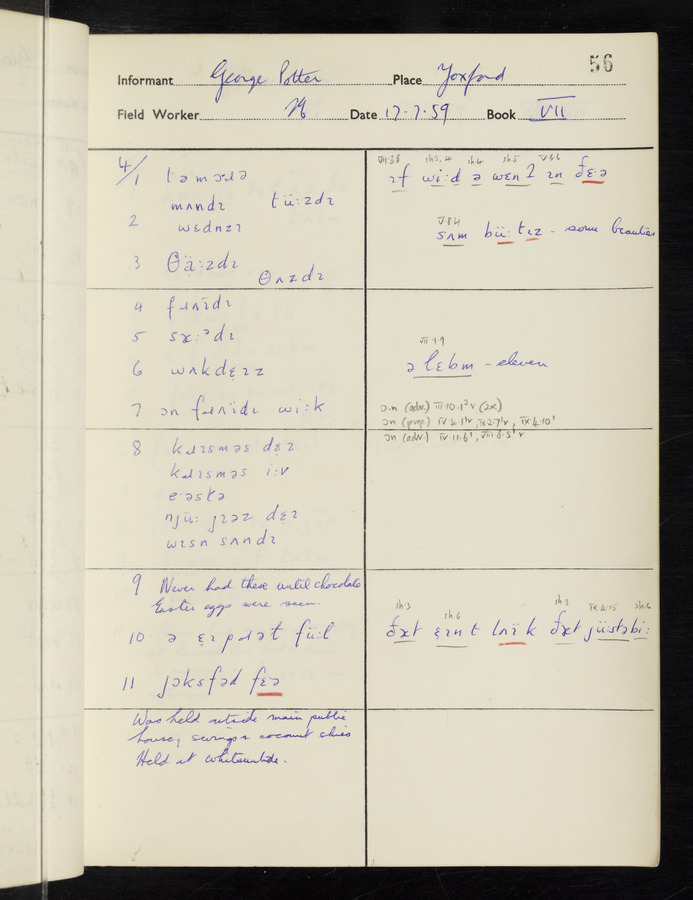 56
Informant George Potter Place Yoxford
Field Worker Date 17.7.59 Book VII
4/1 təmɔɹə
mʌndɪ tü:zdɪ
2 wɛdnzɪ
3 θä:zdɪ
θʌzdɪ
4 fɹʌïdɪ
5 sæ:ᵊdɪ
6 wʌkdɛɪz
7 ɔn fɹʌïdɪ wi:k
8 kɹɪsməs dɛɪ
kɹɪsməs i:v
e·əstə
njü: jɪəz dɛɪ
wɪsn sʌndɪ
9 Never had these until chocolate
Easter eggs were seen.
10 ə ɛɪpɹət fü:l
11 jɔksfəd fɛ:ə
Was held outside main public
house, swings & coconut shies
Held at Whitsuntide.
VII·3·8 sh5, 4 sh4 sh·5 V·6·6
ɪf wi:d ə wɛn ʔ ɪn ðɛ:ə
V·8·4
sʌm bü:tɪz - some beauties
VII·1·9
əlɛbm - eleven
ɔ·n (adv.) III·10·1³v (2x)
ɔn (prep.) IV·4·1'v, IX·2·7'v, IX·4·10'
ɔn (adv.) IV·11·6', VIII·3·5'v
sh·3 sh·6 sh·3 IX·4·15 sh·6
ðæt ɛɪnt lʌïk ðæt jü:stəbi: